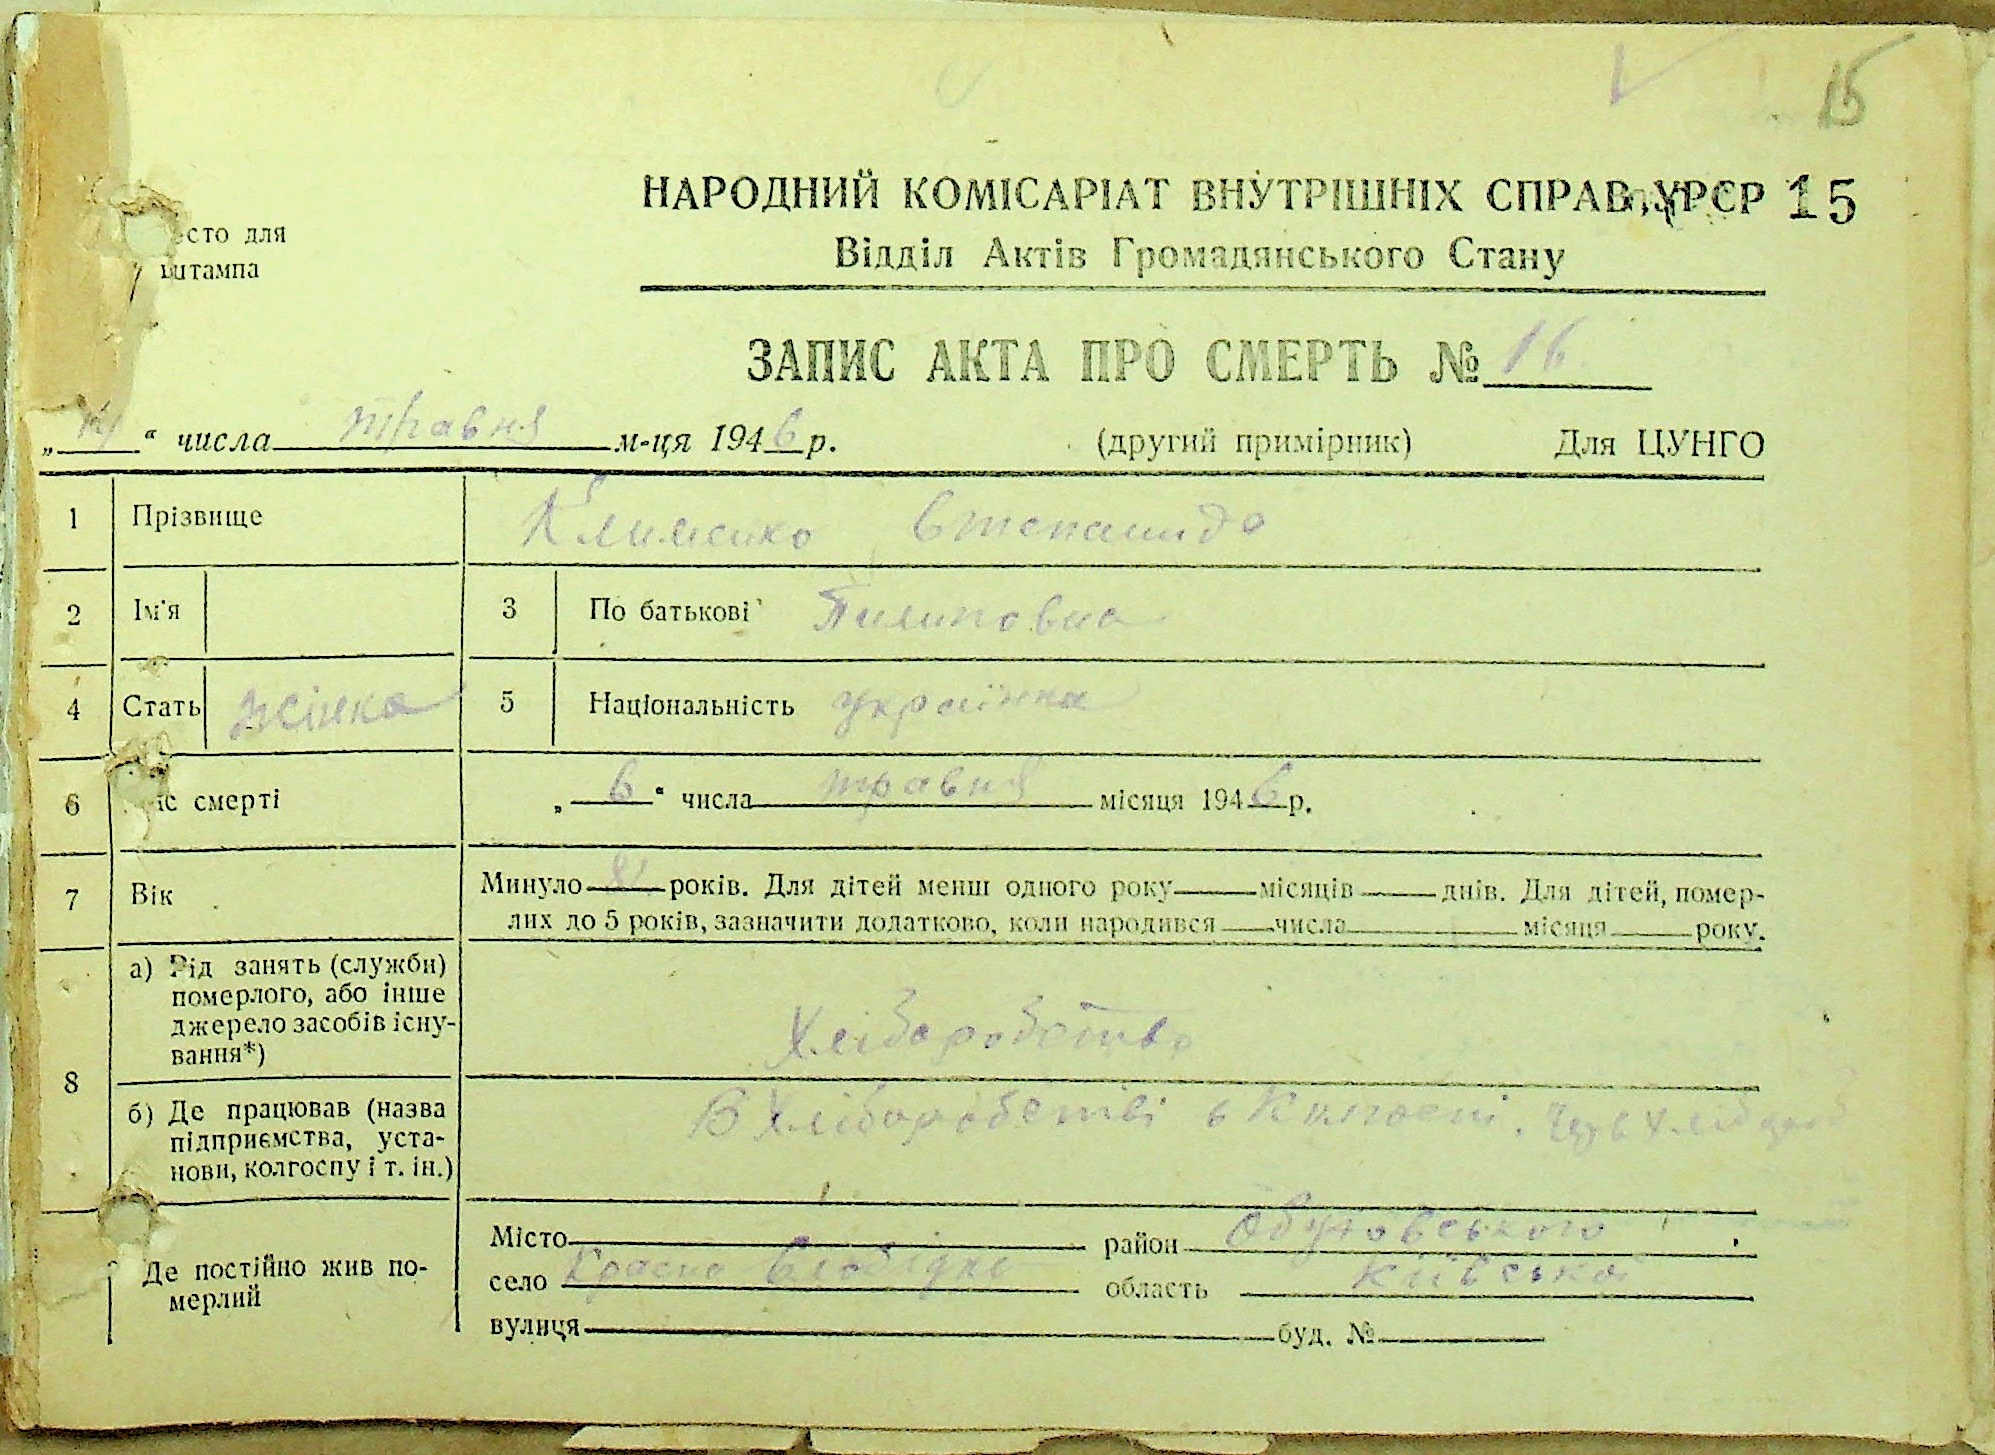 15
НАРОДНИЙ КОМІСАРІАТ ВНУТРІШНІХ СПРАВ УРСР 15
Відділ Актів Громадянського Стану
есто для
штампа
ЗАПИС АКТА ПРО СМЕРТЬ № 16
„ “ числа травня м-ця 1946 р.
(другий примірник) Для ЦУНГО
1 Прізвище Клименко Степанида
2 Ім'я 3 По батькові Пилиповна
4 Стать жінка 5 Національність українка
6 ас смерті „6“ числа травня місяця 1946 р.
7 Вік Минуло років. Для дітей менш одного року місяців днів. Для дітей, помер-
лих до 5 років, зазначити додатково, коли народився числа місяця року.
8 а) Рід занять (служби)
померлого, або інше
джерело засобів існу-
вання*)
Хліборобство
б) Де працював (назва
підприємства, уста-
нови, колгоспу і т. ін.)
В Хліборобстві в
Де постійно жив по-
мерлий
Місто район Обуховського
село Красна Слобідка область Київська
вулиця буд. №